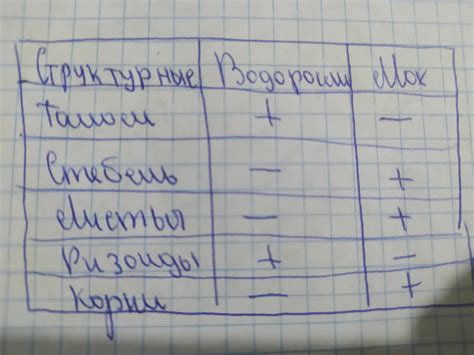 Структурные Водоросли Мох
Таллом + —
Стебель — +
Листья — +
Ризоиды + —
Корни — +